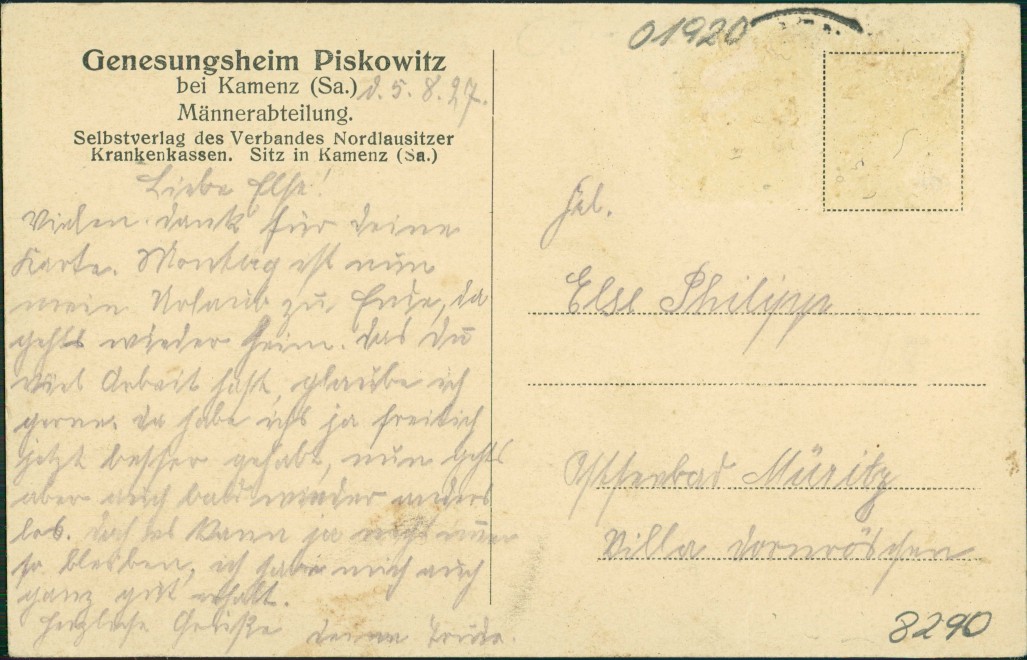 Genesungsheim Piskowitz
bei Kamenz (Sa.) d. 5. 8. 27.
Männerabteilung.
Selbstverlag des Verbandes Nordlausitzer
Krankenkassen. Sitz in Kamenz (Sa.)
Liebe Else!
Vielen Dank für deine
Karte. Montag ist nun
mein Urlaub zu Ende, da
gehts wieder heim. Das du
viel Arbeit hast, glaube ich
gerne. Da habe ichs ja freilich
jetzt besser gehabt, nun gehts
aber auch bald wieder anders
los. Doch es kann ja nicht immer
so bleiben, ich habe mich auch
ganz gut erholt.
Herzliche Grüße deine Trude.
01920
Frl.
Else Philipp
Ostseebad Müritz
Villa Dornröschen
8290